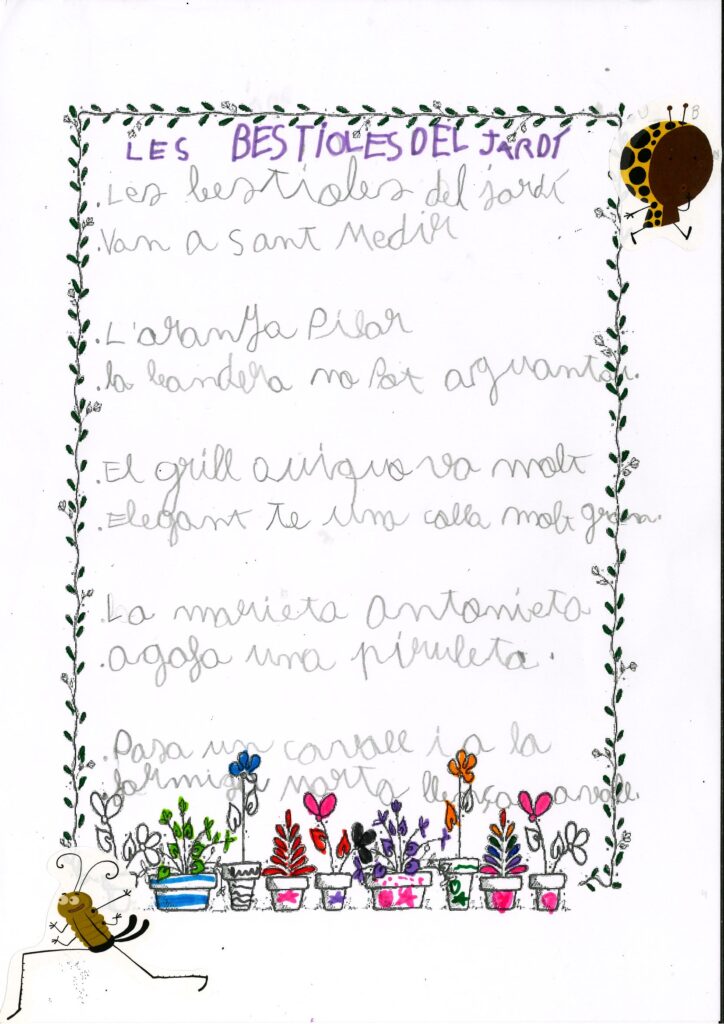 LES BESTIOLES DEL JARDÍ
.Les bestioles del jardí
.Van a Sant Medir
.L'aranya Pilar
.la bandera no Pot aguantar.
.El grill avui va molt
.Elegant te una colla molt gran.
.La marieta Antonieta
.agafa una piruleta.
.Pasa un cavall i a la
.formiga marta llença avall.